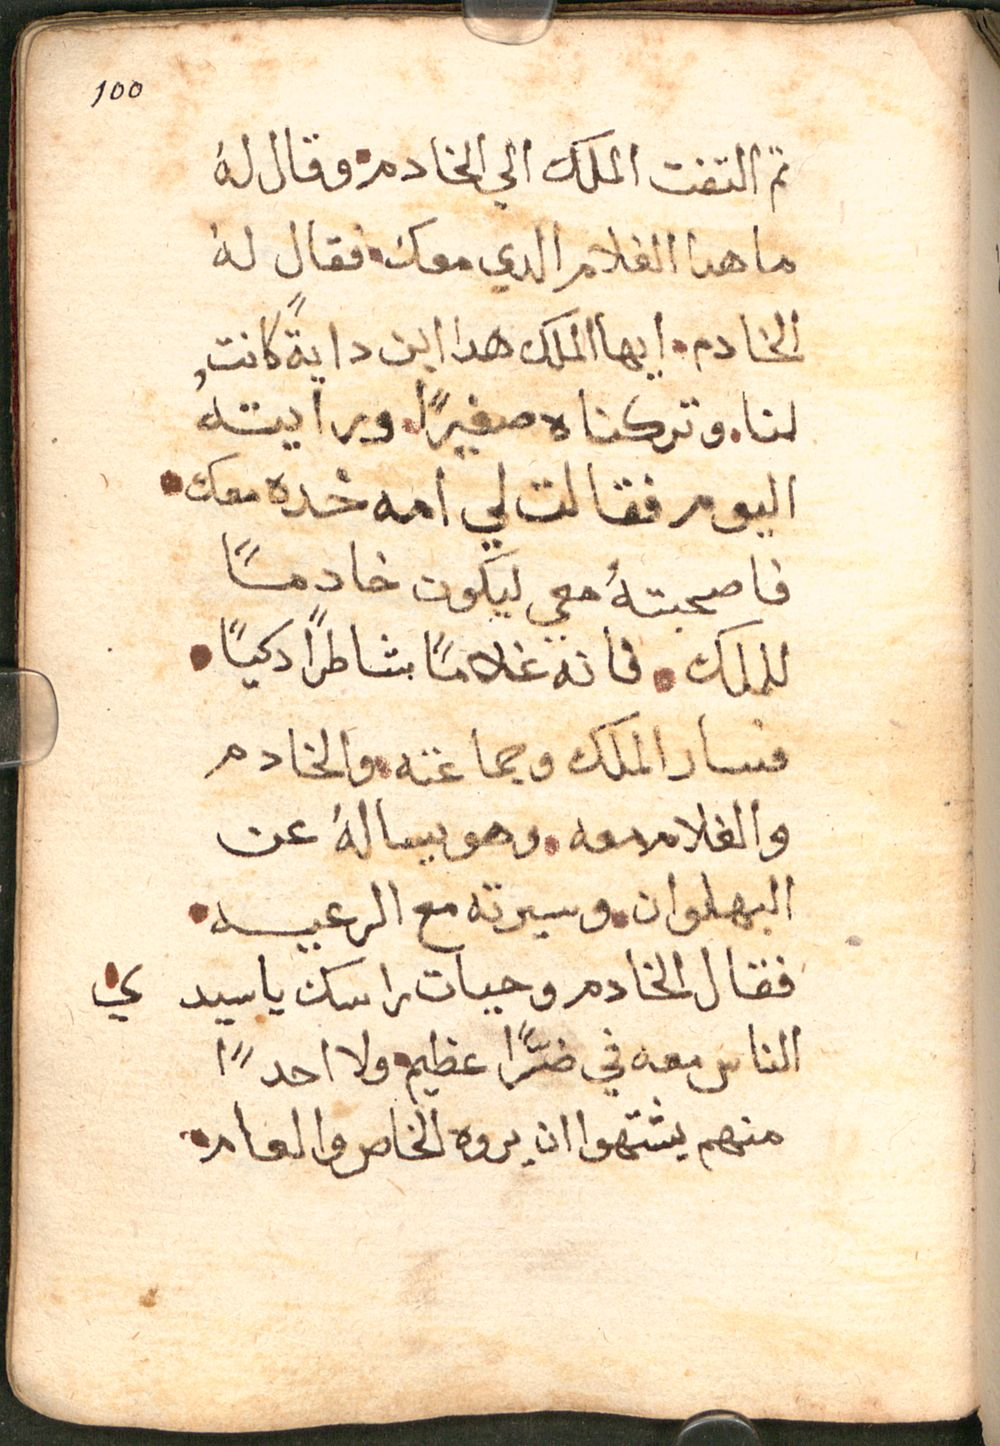 100
تم التفت الملك الي الخادم• وقال لهُ
ما هدا الغلام الدي معك• فقال لهُ
الخادم• ايها الملك هدا ابن دايةً كانت
لنا• وتركناه صغيرًا• ورايتهُ
اليوم فقالت لي امه خده معك•
فاصحبتهُ معي ليكون خادمًا
للملك• فانه غلامًا شاطرًا دكيًا•
فسار الملك وجماعته• والخادم
والغلام معه• وهو يسالهُ عن
البهلوان• وسيرته مع الرعيه•
فقال الخادم وحيات راسك يا سيدي•
الناس معه في ضرًا عظيم• ولا احدًا
منهم يشتهوا ان يروه الخاص والعام•